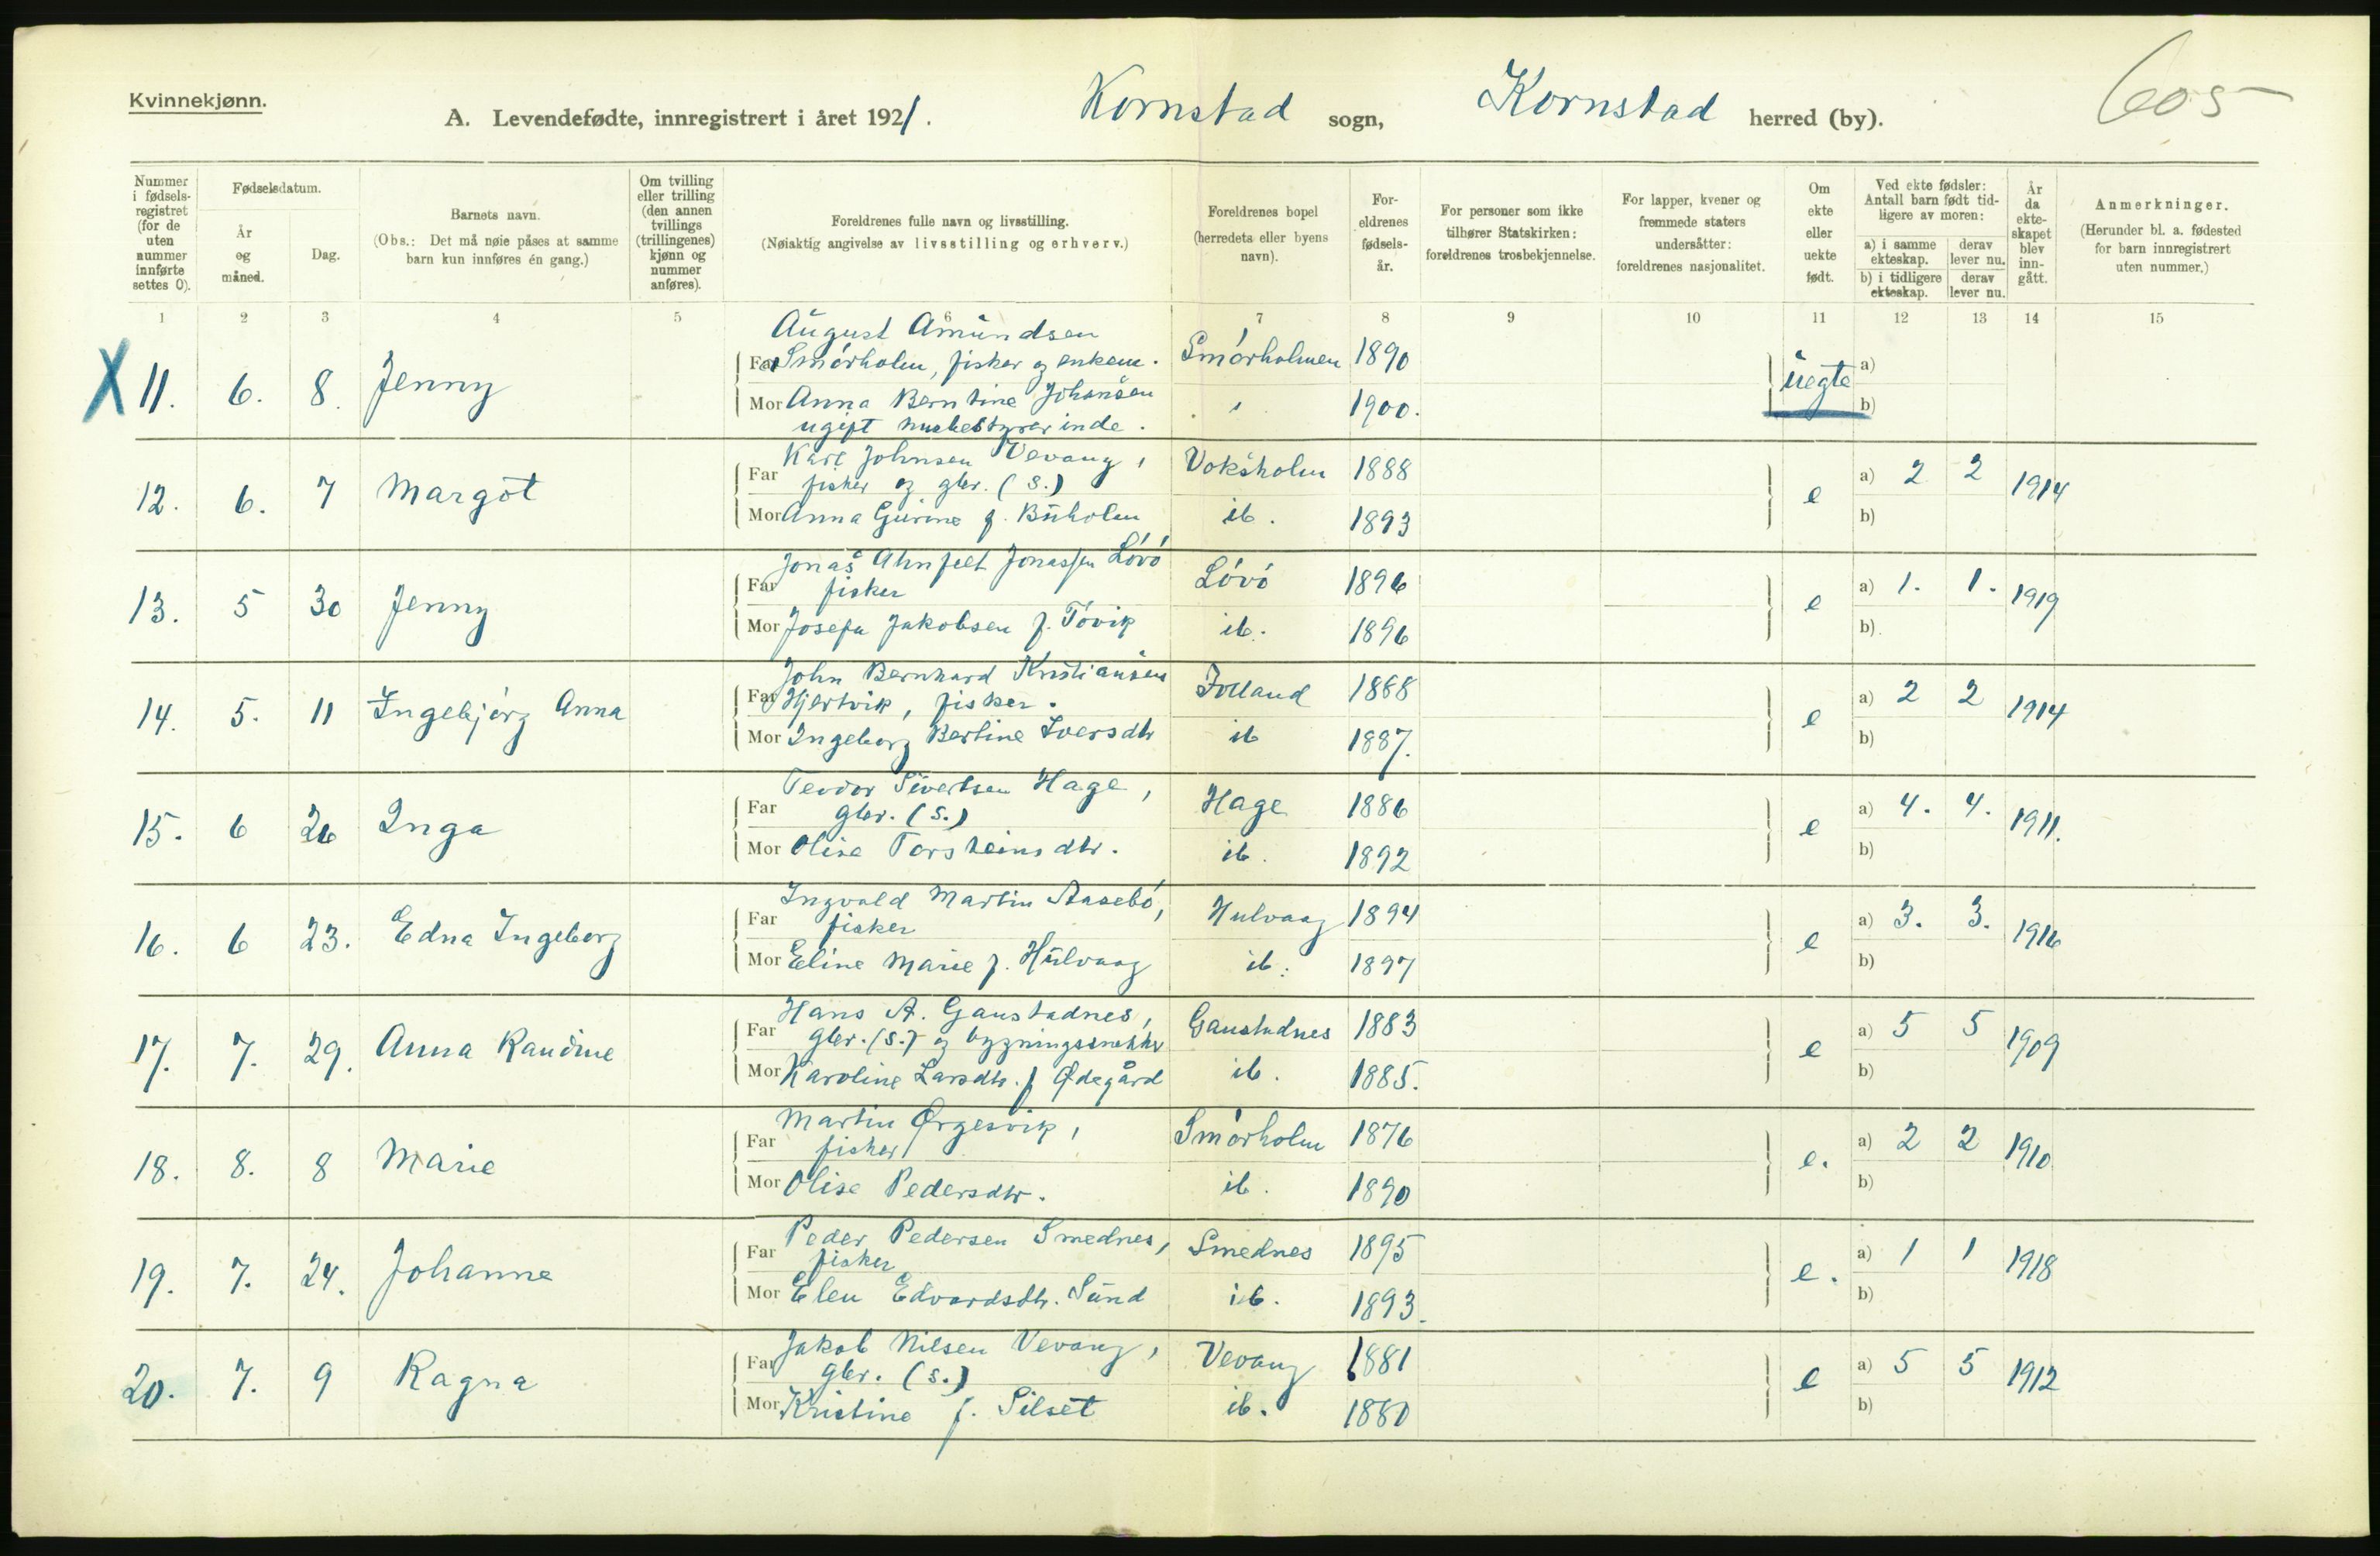 Kvinnekjønn.
A. Levendefødte, innregistrert i året 1921. Kornstad sogn, Kornstad herred (by). 605
Nummer i fødselsregistret (for de uten nummer innførte settes 0).
Fødselsdatum.
År og måned.
Dag.
Barnets navn.
(Obs.: Det må nøie påses at samme barn kun innføres én gang.)
Om tvilling eller trilling (den annen tvillings (trillingenes) kjønn og nummer anføres).
Foreldrenes fulle navn og livsstilling.
(Nøiaktig angivelse av livsstilling og erhverv.)
Foreldrenes bopel (herredets eller byens navn).
Foreldrenes fødselsår.
For personer som ikke tilhører Statskirken: foreldrenes trosbekjennelse.
For lapper, kvener og fremmede staters undersåtter: foreldrenes nasjonalitet.
Om ekte eller uekte født.
Ved ekte fødsler: Antall barn født tidligere av moren:
a) i samme ekteskap. derav lever nu.
b) i tidligere ekteskap. derav lever nu.
År da ekteskapet blev inngått.
Anmerkninger.
(Herunder bl. a. fødested for barn innregistrert uten nummer.)
1 2 3 4 5 6 7 8 9 10 11 12 13 14 15
August Amundsen
X 11. 6. 8. Jenny Far Smórholm, fisker og enkem. Smórholmen 1890 uegte a)
Mor Anna Berntine Johansen 1900. b)
ugift husbestyrerinde.
Karl Johnsen Vevang,
12. 6. 7 Margot Far fisker og gbr. (S.) Voksholm 1888 e a) 2 2 1914
Mor Anna Gurine f. Buholm ib. 1893 b)
Jonas Ahnfelt Jonassen Lóvó
13. 5 30 Jenny Far fisker Lóvó 1896 e a) 1. 1. 1919
Mor Josefa Jakobsen f. Tóvik ib. 1896 b)
John Bernhard Kristiansen
14. 5. 11 Ingebjórg Anna Far Hjertvik, fisker. Folland 1888 e a) 2 2 1914
Mor Ingeborg Bertine Iversdtr ib 1887. b)
Teodor Sivertsen Hage,
15. 6 26 Inga Far gbr. (S.) Hage 1886 e a) 4. 4. 1911.
Mor Olise Torsteinsdtr. ib. 1892 b)
Ingvald Martin Aasebó,
16. 6 23. Edna Ingeborg Far fisker Hulvaag 1894 e a) 3. 3. 1916
Mor Eline Marie f. Hulvaag ib. 1897 b)
Hans A. Gaustadnes,
17. 7. 29. Anna Raudine Far gbr. (S.) og bygningssnekker Gaustadnes 1883 e a) 5 5 1909
Mor Karoline Larsdtr. f Ødegård ib. 1885. b)
Martin Ørgesvik,
18. 8. 8 Marie Far fisker Smórholm 1876 e. a) 2 2 1910
Mor Olise Pedersdtr. ib. 1890 b)
Peder Pedersen Smednes,
19. 7. 24. Johanne Far fisker Smednes 1895 e. a) 1 1 1918
Mor Elen Edvardsdtr. Sund ib. 1893. b)
Jakob Nilsen Vevang,
20. 7. 9 Ragna Far gbr. (S.) Vevang 1881 e a) 5 5 1912
Mor Kristine f. Silset ib. 1880 b)